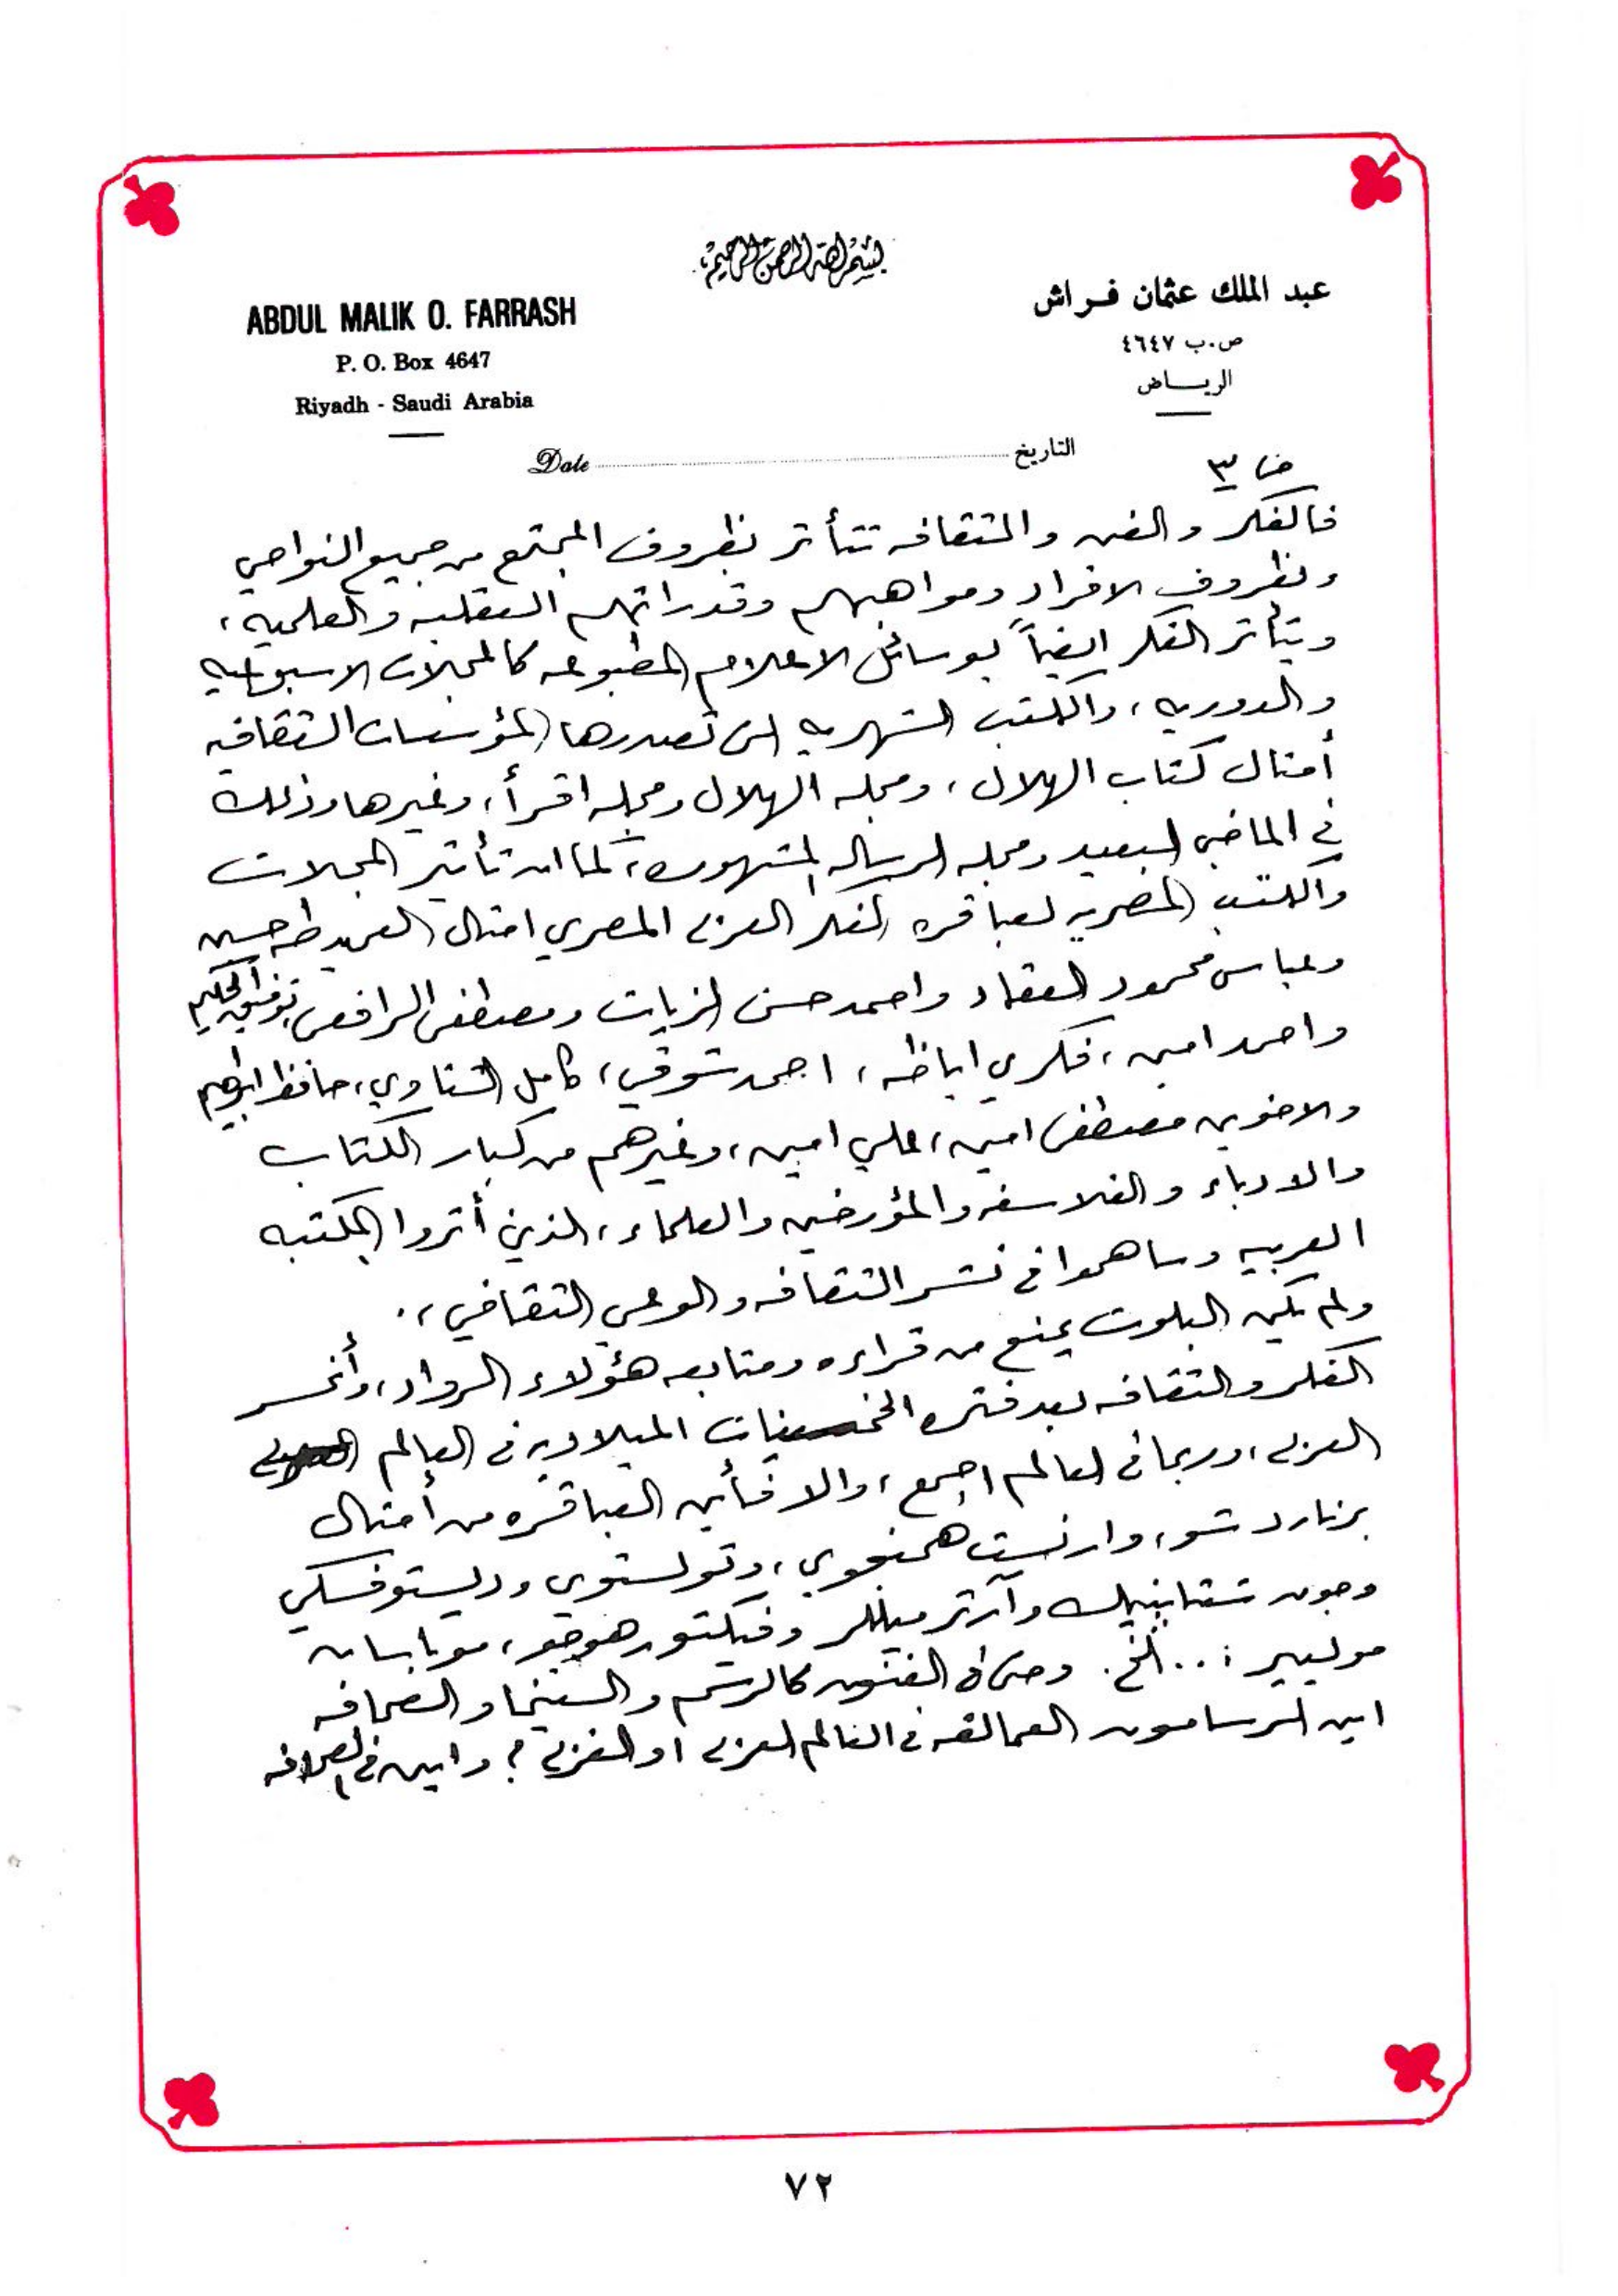 بسم الله الرحمن الرحيم
ABDUL MALIK O. FARRASH
P. O. Box 4647
Riyadh - Saudi Arabia
عبد الملك عثمان فراش
ص.ب ٤٦٤٧
الرياض
Date التاريخ
٣
فالفكر والفن والثقافه تتأثر بظروف المجتمع من جميع النواحي
وبظروف الافراد ومواهبهم وقدراتهم العقليه والعلميه،
ويتأثر الفكر ايضاً بوسائل الاعلام المطبوعه كالمجلات الاسبوعيه
والدوريه، والكتب الشهريه التى تصدرها المؤسسات الثقافيه
أمثال كتاب الهلال، ومجله الهلال ومجله اقرأ، وغيرها وذلك
في الماضي البعيد ومجله الرساله المشهوره، كما ان تأثير المجلات
والكتب المصريه لعباقره الفكر العربى المصري امثال العميد طه حسين
وعباس محمود العقاد واحمد حسن الزيات ومصطفى الرافعى توفيق الحكيم
واحمد امين، فكري اباظه، احمد شوقي، كامل الشناوي، حافظ ابراهيم
والاخوين مصطفى امين، علي امين، وغيرهم من كبار الكتاب
والادباء والفلاسفه والمؤرخين والعلماء، الذين أثروا المكتبه
العربيه وساهموا فى نشر الثقافه والوعى الثقافي،.
ولم يكن البلوت يمنع من قراءه ومتابعه هؤلاء الرواد، وأنحسر
الفكر والثقافه بعد فتره الخمسينات الميلاديه فى العالم
العربى، وربما فى العالم اجمع، والا فأين العباقره من أمثال
برنارد شو، وارنست همنجوي، وتولستوي وديستوفسكي
وجون شتاينبيك وآرثر ميللر وفيكتور هوجو، موباسان
موليير ؛... الخ. وحتى فى الفنون كالرسم والسينما والصحافه
اين الرسامون العمالقه فى العالم العربى او الغربى ؟ واين فى الصحافه
٧٢